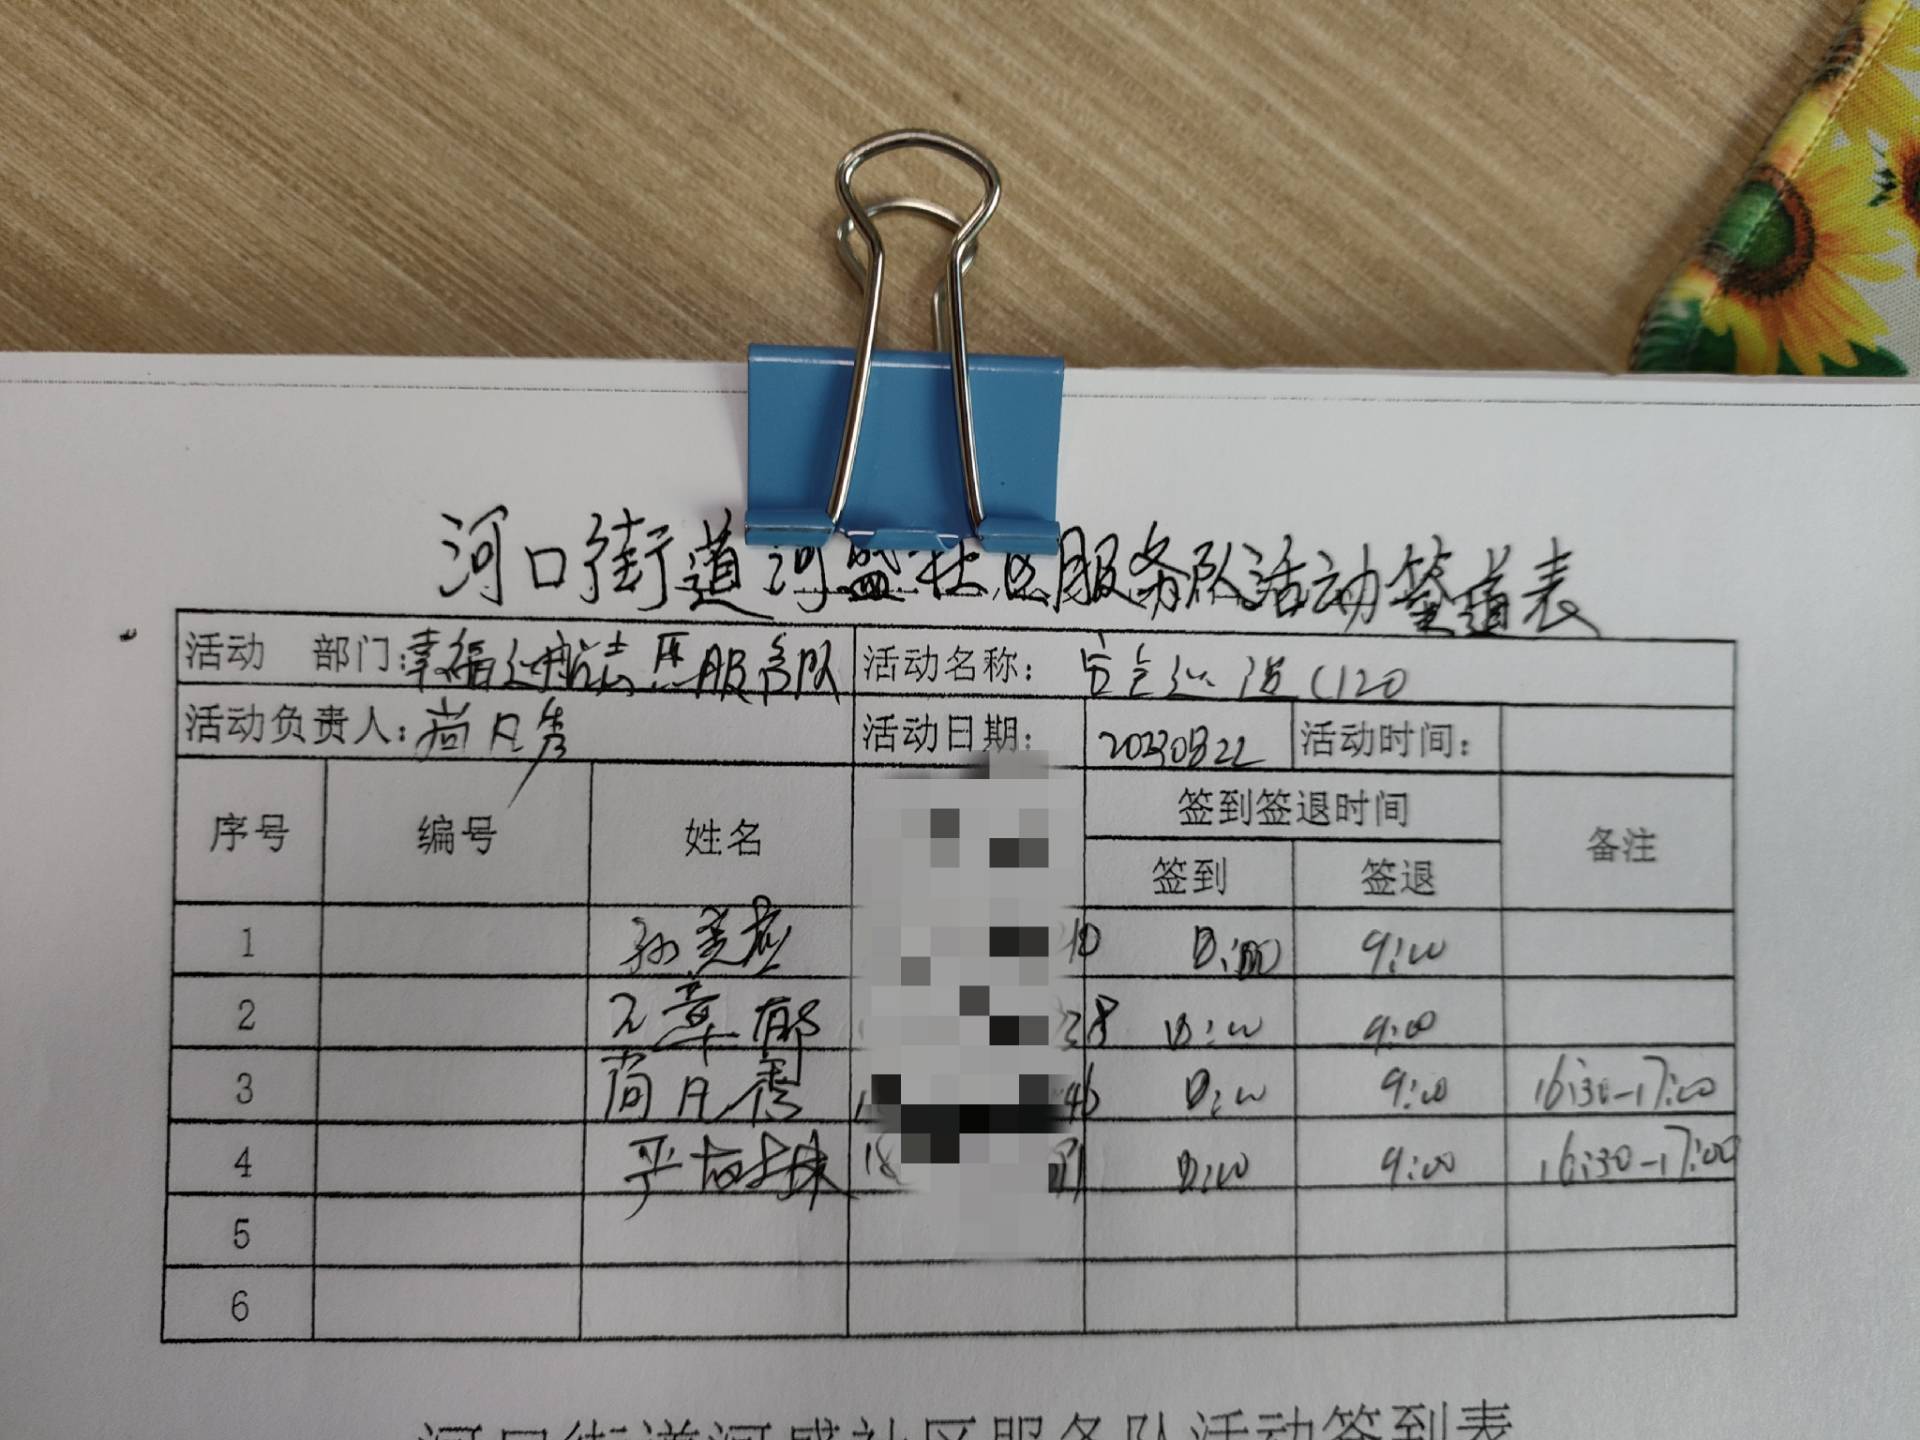 河口街道河盛社区服务队活动签道表
活动 部门: 幸福 志愿服务队 活动名称: 安全巡逻(120
活动负责人: 尚凡秀 活动日期: 20230822 活动时间:
序号 编号 姓名 签到签退时间 备注
签到 签退
1 孙美 10 8:00 9:00
2 38 8:00 9:00
3 尚凡秀 46 8:00 9:00 16:30-17:00
4 严 18 8:00 9:00 16:30-17:00
5
6
河口街道河盛社区服务队活动签到表